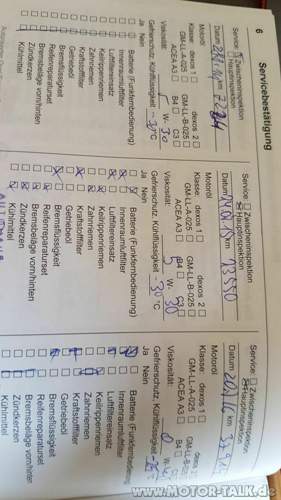 6
Servicebestätigung
Service: Zwischeninspektion
Hauptinspektion
Datum km
Motoröl
Klasse: dexos 1 dexos 2
GM-LL-A-025
GM-LL-B-025
ACEA A3 B4 C3
Viskosität: 5 W- 30
Gefrierschutz, Kühlflüssigkeit °C
Ja Nein
Batterie (Funkfernbedienung)
Innenraumluftfilter
Luftfiltereinsatz
Keilrippenriemen
Zahnriemen
Kraftstofffilter
Getriebeöl
Bremsflüssigkeit
Reifenreparaturset
Bremsbeläge vorn/hinten
Zündkerzen
Kühlmittel
Service: Zwischeninspektion
Hauptinspektion
Datum km
Motoröl
Klasse: dexos 1 dexos 2
GM-LL-A-025
GM-LL-B-025
ACEA A3 B4 C3
Viskosität: 5 W- 30
Gefrierschutz, Kühlflüssigkeit °C
Ja Nein
Batterie (Funkfernbedienung)
Innenraumluftfilter
Luftfiltereinsatz
Keilrippenriemen
Zahnriemen
Kraftstofffilter
Getriebeöl
Bremsflüssigkeit
Reifenreparaturset
Bremsbeläge vorn/hinten
Zündkerzen
Kühlmittel
Service: Zwischeninspektion
Hauptinspektion
Datum km
Motoröl
Klasse: dexos 1
GM-LL-A-025
GM-LL-B-025
ACEA A3
Viskosität: W-
Gefrierschutz, Kühlflüssigkeit
Ja Nein
Batterie (Funkfernbedienung)
Innenraumluftfilter
Luftfiltereinsatz
Keilrippenriemen
Zahnriemen
Kraftstofffilter
Getriebeöl
Bremsflüssigkeit
Reifenreparaturset
Bremsbeläge vorn/hinten
Zündkerzen
Kühlmittel
MOTOR-TALK.de